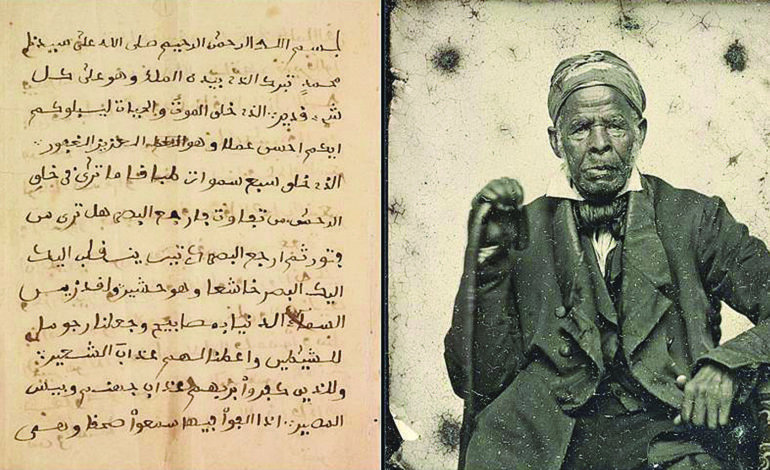 بسم الله الرحمن الرحيم صلى الله على سيدنا
محمد تبرك الذ بيده الملك وهو على كل
شء قدير الذ خلق الموت والحيات ليبلوكم
ايكم احسن عملا وهو العزيز الغفور
الذ خلق سبع سموات طباقا ما ترى في خلق
الرحمن من تفاوت فارجع البصر هل ترى من
فتور ثم ارجع البصر ينقلب اليك
اليك البصر خاشعا وهو حشير ولقد زين
السماء الدنيا بمصابيح وجعلنا رجوما
للشيطين واعتدنا لهم عذاب الشعير
وللذين كفروا بربهم عذاب جهنم وبيس
المصير اذا القوا فيها سمعوا